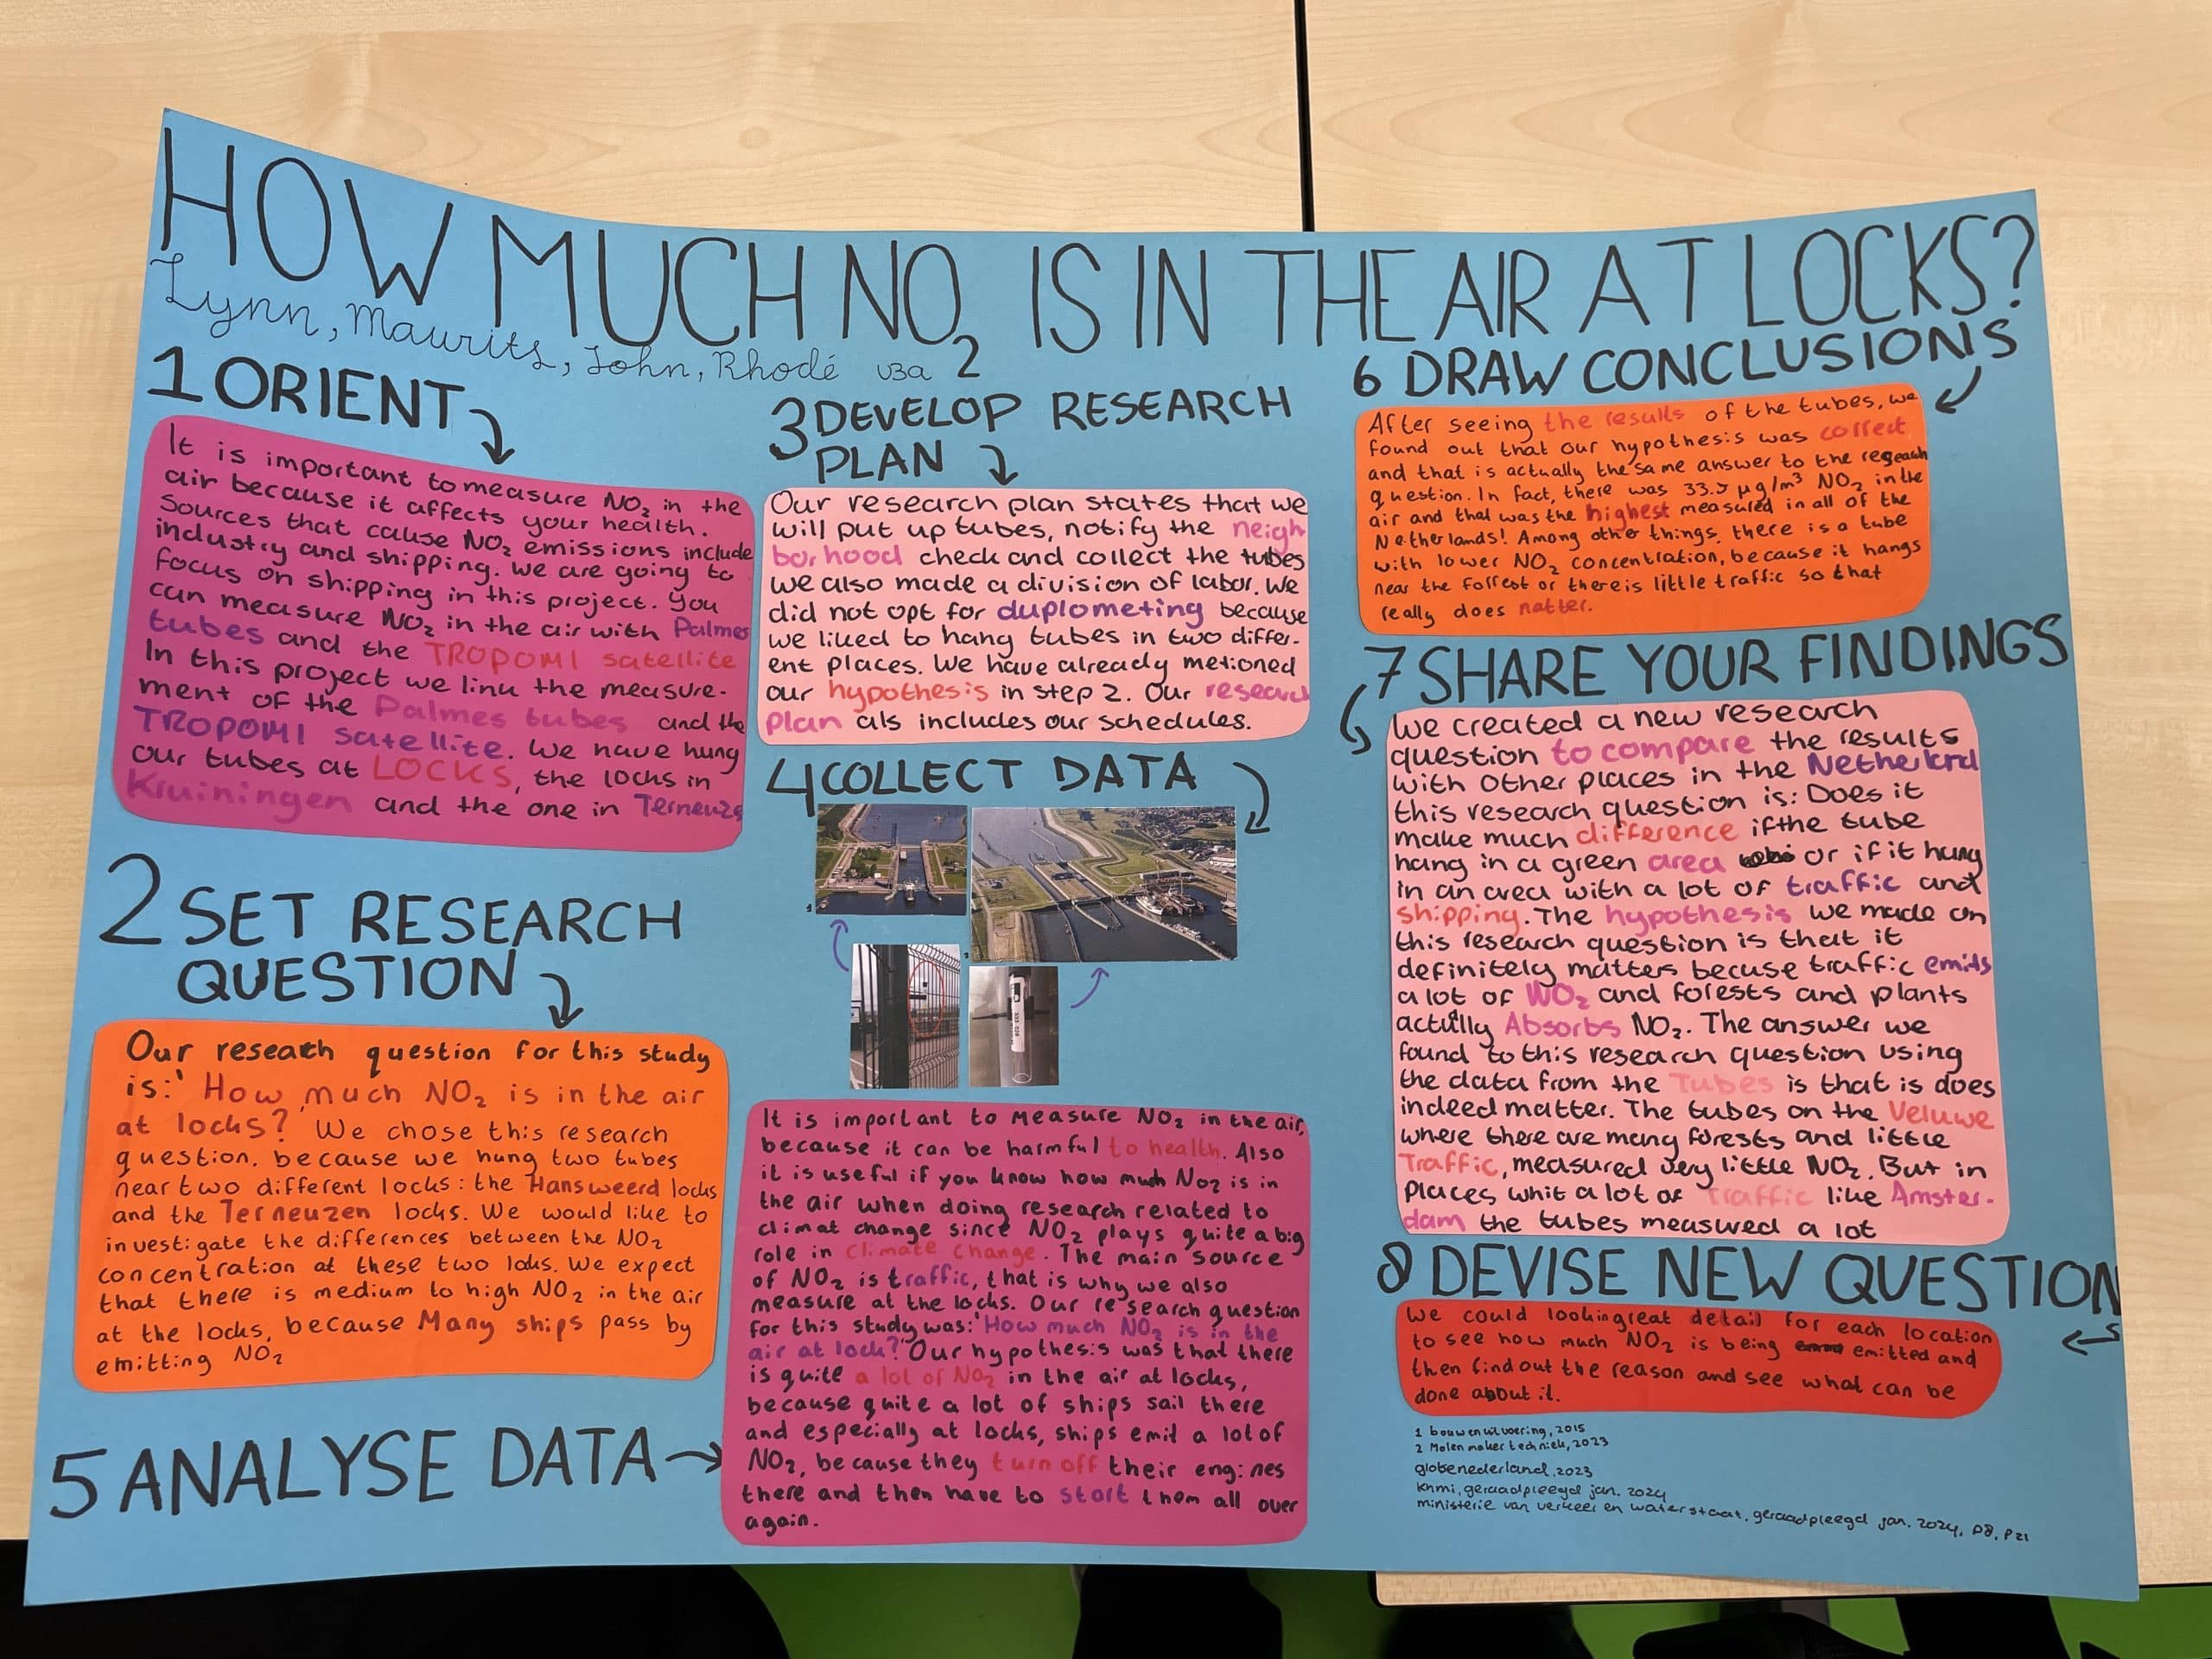 HOW MUCH NO₂ IS IN THE AIR AT LOCKS?
Lynn, Maurits, John, Rhodé v3a 2
1 ORIENT
It is important to measure NO₂ in the
air because it affects your health.
Sources that cause NO₂ emissions include
industry and shipping. We are going to
focus on shipping in this project. You
can measure NO₂ in the air with Palmes
tubes and the TROPOMI satellite
In this project we link the measure-
ment of the Palmes tubes and the
TROPOMI satellite. We have hung
our tubes at LOCKS, the locks in
Kruiningen and the one in Terneuze
2 SET RESEARCH
QUESTION
Our reseach question for this study
is:' How much NO₂ is in the air
at locks?' We chose this research
question. because we hung two tubes
near two different locks: the Hansweerd locks
and the Terneuzen locks. We would like to
investigate the differences between the NO₂
concentration at these two loks. We expect
that there is medium to high NO₂ in the air
at the locks, because Many ships pass by
emitting NO₂
3 DEVELOP RESEARCH
PLAN
Our research plan states that we
will put up tubes, notify the neigh
borhood check and collect the tubes
we also made a division of labor. We
did not opt for duplometing because
we liked to hang tubes in two differ-
ent places. We have already metioned
our hypothesis in step 2. Our research
plan als includes our schedules.
4 COLLECT DATA
5 ANALYSE DATA
It is important to measure NO₂ in the air,
because it can be harmful to health. Also
it is useful if you know how much NO₂ is in
the air when doing research related to
climat change since NO₂ plays quite a big
role in Climate change. The main source
of NO₂ is traffic, that is why we also
measure at the locks. Our research question
for this study was:'How much NO₂ is in the
air at lock?' Our hypothesis was that there
is quite a lot of NO₂ in the air at locks,
because quite a lot of ships sail there
and especially at locks, ships emit a lot of
NO₂, because they turn off their engines
there and then have to start them all over
again.
6 DRAW CONCLUSIONS
After seeing the results of the tubes, we
found out that our hypothesis was correct
and that is actually the same answer to the
question. In fact, there was 33.5 µg/m³ NO₂ in the
air and that was the highest measured in all of the
Netherlands! Among other things, there is a tube
with lower NO₂ concentration, because it hangs
near the forrest or there is little traffic so that
really does matter.
7 SHARE YOUR FINDINGS
We created a new research
question to compare the results
with other places in the
this research question is: Does it
make much difference if the tube
hang in a green area or if it hung
in an area with a lot of traffic and
shipping. The hypothesis we made on
this research question is that it
definitely matters becuse traffic emits
a lot of NO₂ and forests and plants
actully Absorbs NO₂. The answer we
found to this research question using
the data from the Tubes is that is does
indeed matter. The tubes on the Veluwe
where there are many forests and little
Traffic, measured very little NO₂. But in
places whit a lot of traffic like Amster-
dam the tubes measured a lot
8 DEVISE NEW QUESTION
We could lookingreat detail for each location
to see how much NO₂ is being emitted and
then find out the reason and see what can be
done about it.
1 bouwenuitvoering, 2015
2 Molenmaker techniek, 2023
globenederland, 2023
knmi, geraadpleegd jan. 2024
ministerie van verkeer en waterstaat, geraadpleegd jan. 2024, p8, p21